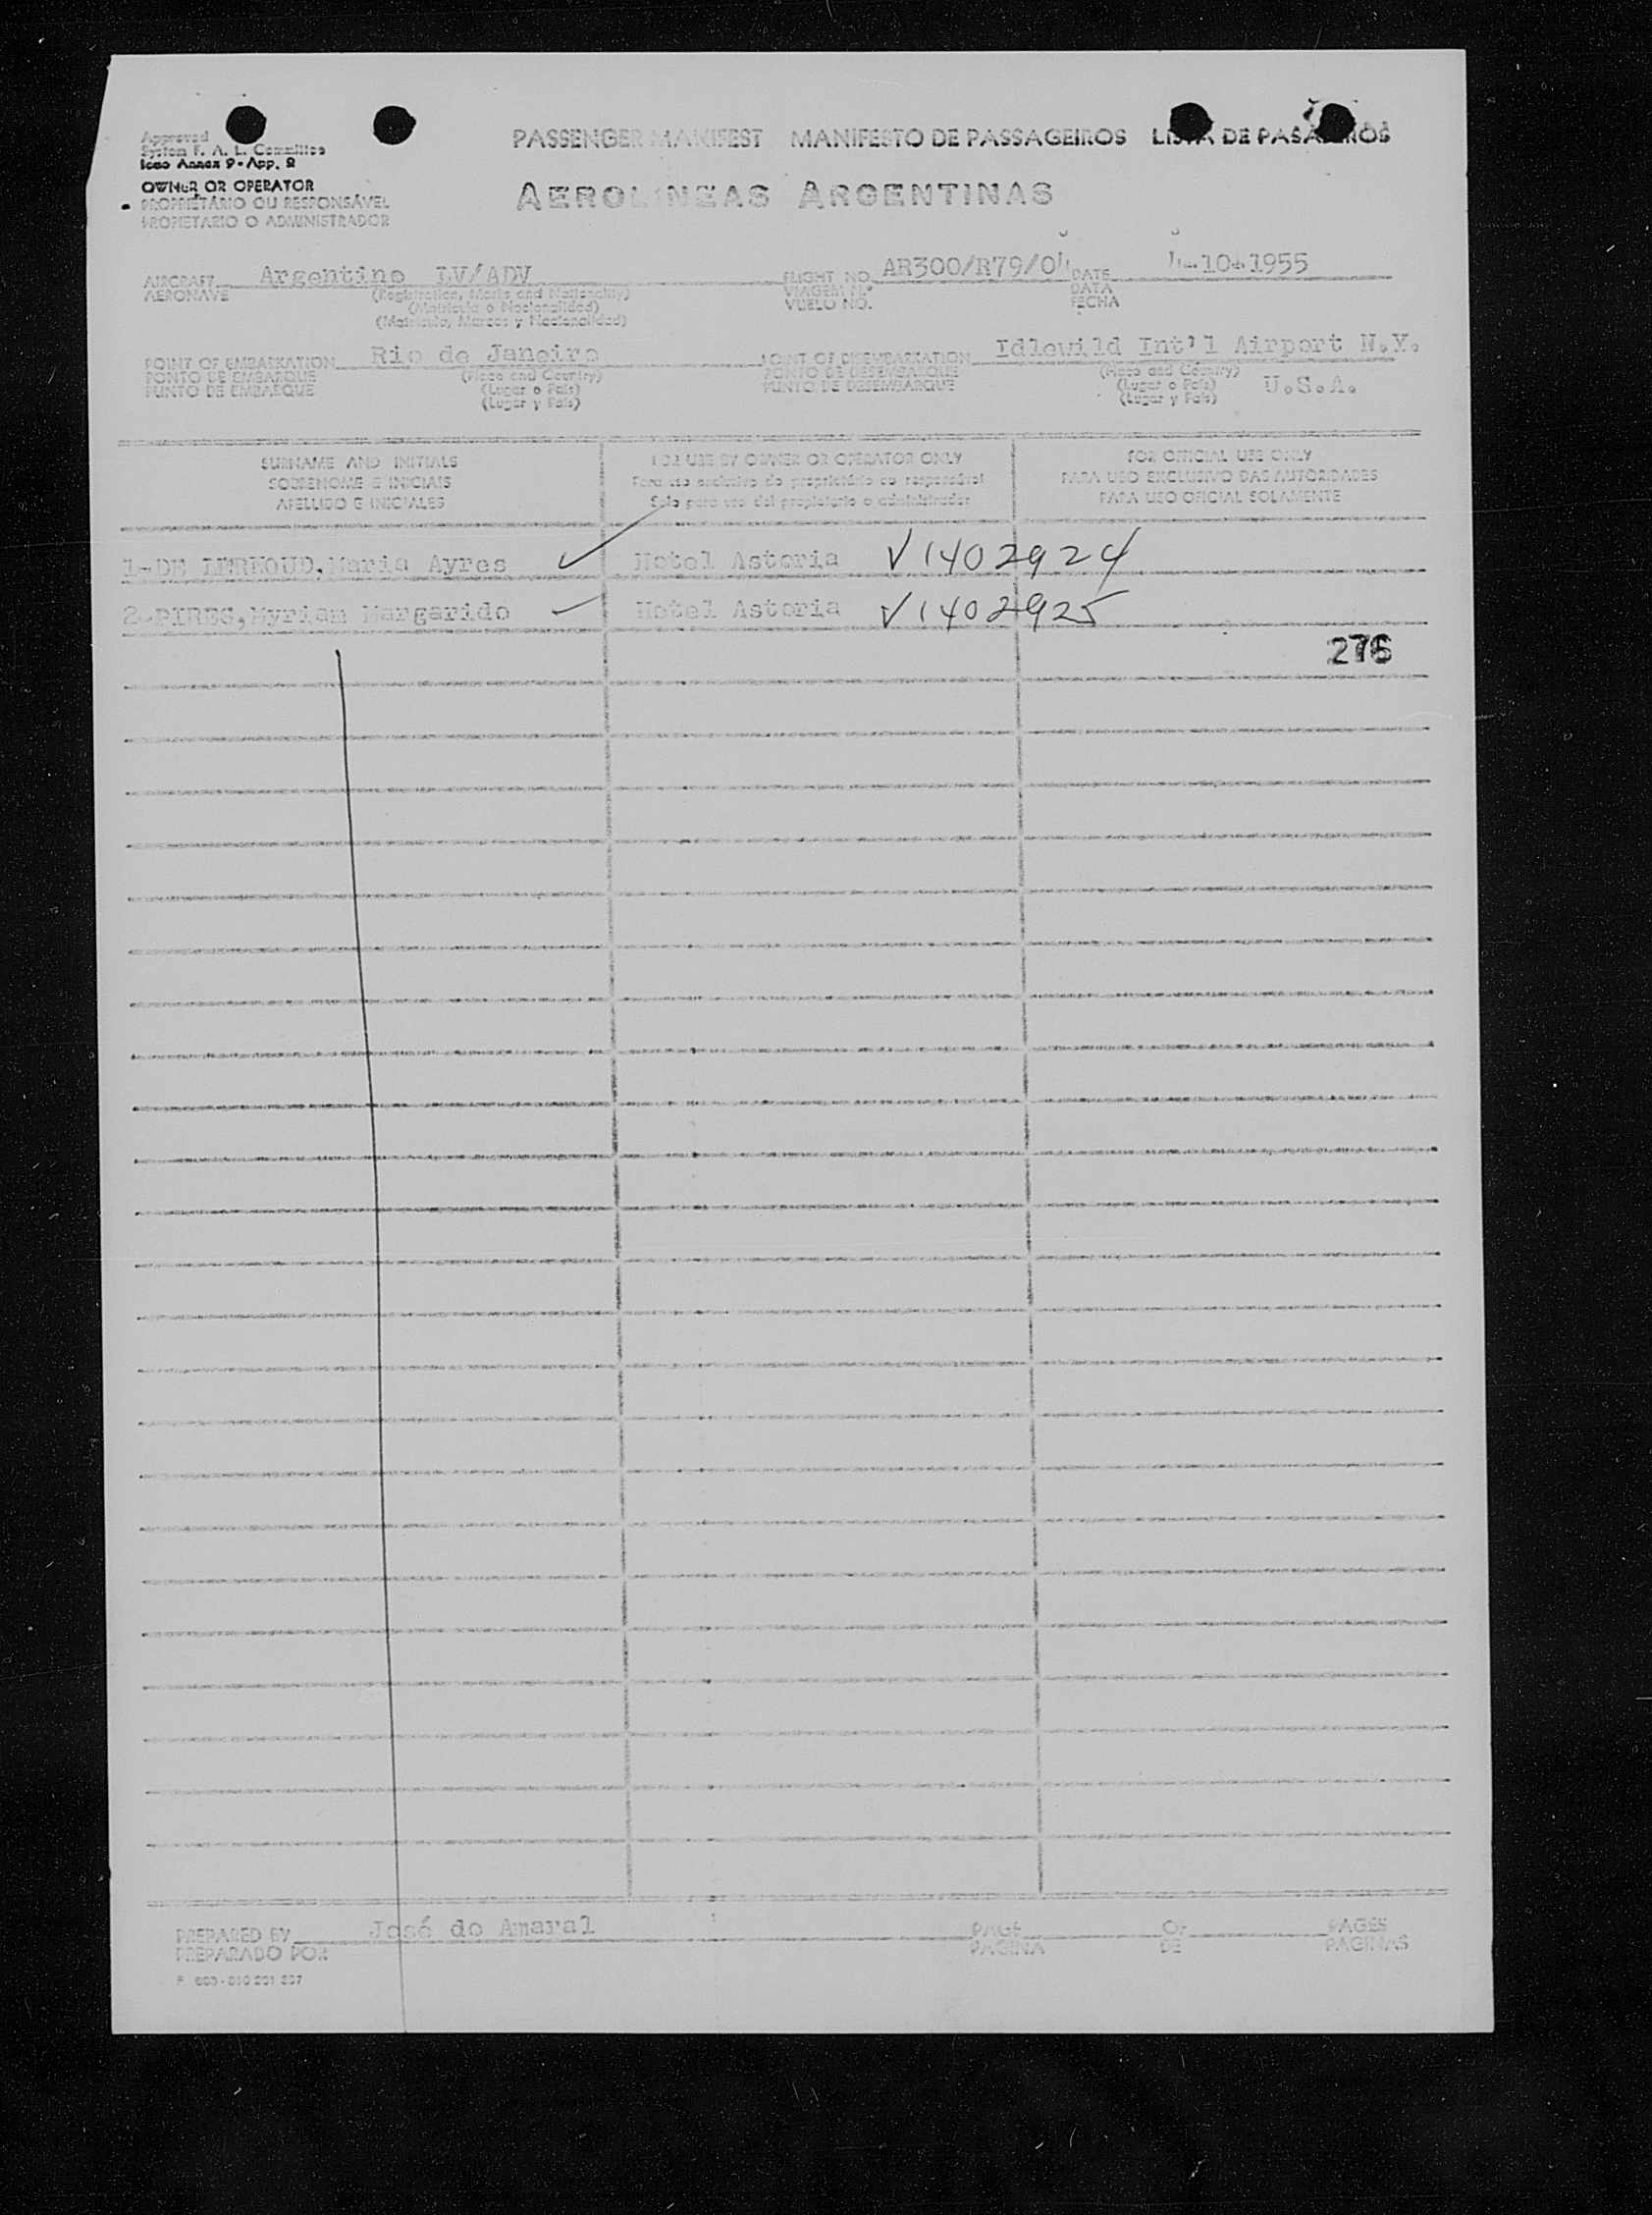 Approved
System F. A. L. Committee
Icao Annex 9 - App. 2
PASSENGER MANIFEST MANIFESTO DE PASSAGEIROS LISTA DE PASAJEROS
OWNER OR OPERATOR
PROPRIETÁRIO OU RESPONSÁVEL
PROPIETARIO O ADMINISTRADOR
AEROLINEAS ARGENTINAS
AIRCRAFT Argentino LV/ADV
AERONAVE
(Registration, Marks and Nationality)
(Matricula o Nacionalidad)
(Matricula, Marcas y Nacionalidad)
FLIGHT NO. AR300/R79/04 DATE 4-10-1955
VIAGEM N.º DATA
VUELO NO. FECHA
POINT OF EMBARKATION Rio de Janeiro
PONTO DE EMBARQUE
PUNTO DE EMBARQUE
(Place and Country)
(Lugar o País)
(Lugar y País)
POINT OF DISEMBARKATION Idlewild Int'l Airport N.Y.
PONTO DE DESEMBARQUE
PUNTO DE DESEMBARQUE
(Place and Country)
(Lugar o País) U.S.A.
(Lugar y País)
SURNAME AND INITIALS
SOBRENOME E INICIAIS
APELLIDO E INICIALES
FOR USE BY OWNER OR OPERATOR ONLY
Para uso exclusivo do proprietário ou responsável
Solo para uso del propietario o administrador
FOR OFFICIAL USE ONLY
PARA USO EXCLUSIVO DAS AUTORIDADES
PARA USO OFICIAL SOLAMENTE
1-DE Maria Ayres Hotel Astoria V1402924
2-PIRES, Myriam Margarido Hotel Astoria V1402925
PREPARED BY José do Amaral
PREPARADO POR
PAGE OF PAGES
PAGINA DE PAGINAS